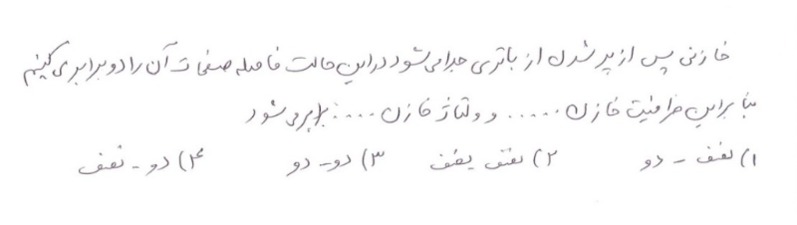 خازنی پس از پر شدن از باتری جدا می‌شود در این حالت فاصله صفحات آن را دو برابر می‌کنیم
بنابراین ظرفیت خازن ..... و ولتاژ خازن ..... برابر می‌شود
۱) نصف - دو ۲) نصف نصف ۳) دو - دو ۴) دو - نصف